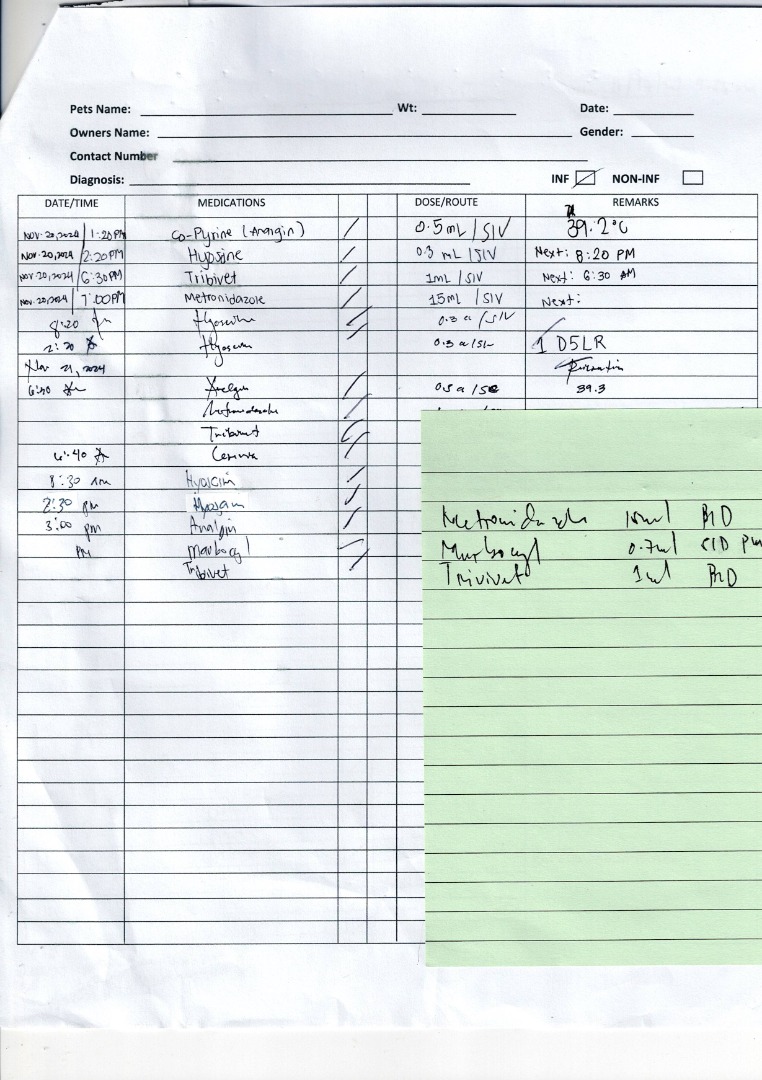 Pets Name: Wt: Date:
Owners Name: Gender:
Contact Number
Diagnosis: INF NON-INF
DATE/TIME MEDICATIONS DOSE/ROUTE REMARKS
Nov. 20, 2024 1:20 PM Co-Pyrine (Analgin) 0.5 mL / SIV 39.2°C
Nov. 20, 2024 2:20 PM Hyosine 0.3 mL / SIV Next: 8:20 PM
Nov. 20, 2024 6:30 PM Tribivet 1mL / SIV Next: 6:30 AM
Nov. 20, 2024 7:00 PM Metronidazole 15mL / SIV Next:
8:20 0.3
2:20 0.3 1 D5LR
Nov 21, 2024
6:30 39.3
6:40
8:30 am Hyoscin
2:30 pm
3:00 pm Analgin
PM Marbocyl
Tribivet
Metronidazole 15ml BID
Marbocyl 0.7ml SID PM
Trivivet 1ml BID